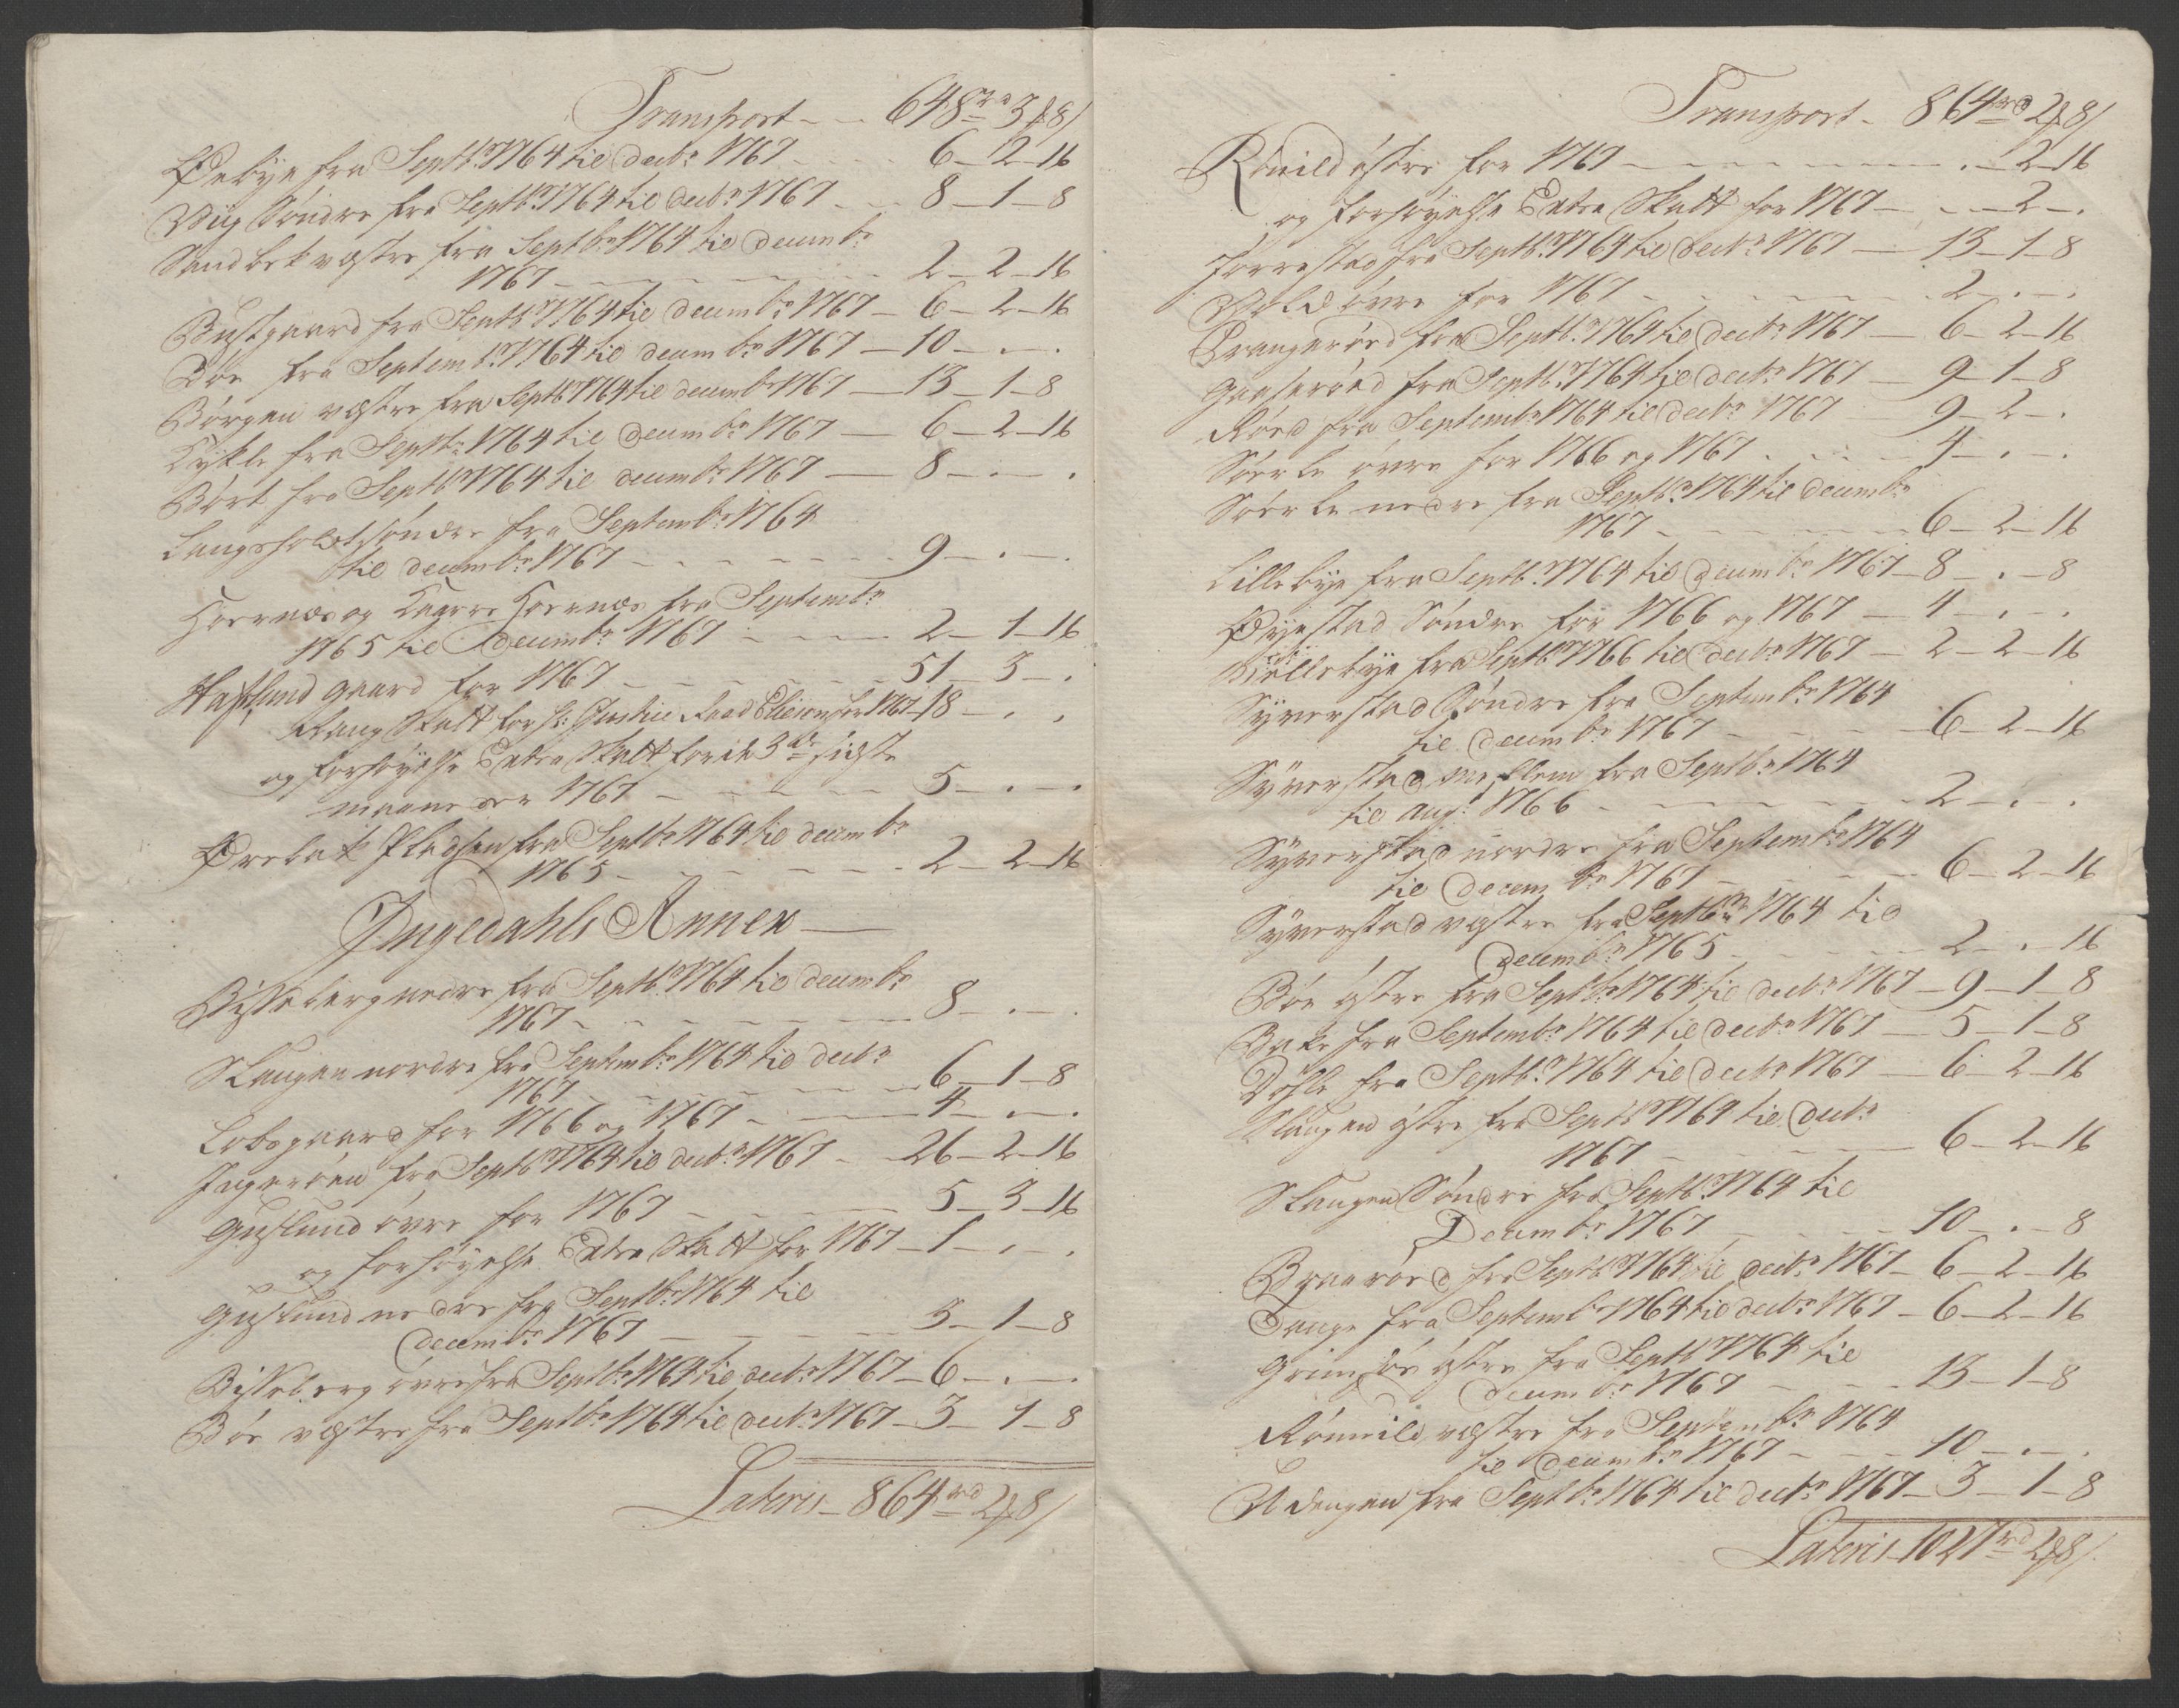 Transport - - 648 rd 3 ℔ 8 s
Øebye fra Septbr 1764 til decbr 1767 - - - 6 - 2 - 16
Viig Søndre fra Septbr 1764 til decbr 1767 - - 8 - 1 - 8
Sandbek vestre fra Septbr 1764 til decembr
1767 - - - - 2 - 2 - 16
Bustgaard fra Septbr 1764 til decembr 1767 - 6 - 2 - 16
Bøe fra Septembr 1764 til decembr 1767 - 10 - . - .
Børgen vestre fra Septbr 1764 til decembr 1767 - 13 - 1 - 8
fra Septbr 1764 til decembr 1767 - 6 - 2 - 16
fra Septbr 1764 til decembr 1767 - 8 - . - .
Langsholt søndre fra Septembr 1764
til decembr 1767 - - - - 9 - . - .
Hornæs og Hornæs fra Septembr
1765 til decembr 1767 - - - 2 - 1 - 16
Haflund gaard for 1767 - - - - 51 - 3 - .
Rang Skatt for Hr: Justice Raad Elieson for 1767 - 18 - . - .
og forhøyelse Extra Skatt for de 3de sidste
maaneder 1767 - - - - 5 - . - .
Ørebek Pladsen fra Septbr 1764 til decembr
1765 - - - - 2 - 2 - 16
Ingedahls Annex
Bisseberg nedre fra Septbr 1764 til decembr
1767 - - - - 8 - . - .
Skaugen nordre fra Septembr 1764 til decbr
1767 - - - - 6 - 1 - 8
Labsgaard for 1766 og 1767 - - - 4 - . - .
Ingerøen fra Septbr 1764 til decbr 1767 - - 26 - 2 - 16
Guslund øvre for 1767 - - - - 5 - 3 - 16
og forhøyelse Extra Skatt for 1767 - 1 - . - .
Guslund nedre fra Septbr 1764 til
decembr 1767 - - - - 3 - 1 - 8
Bisseberg øvre fra Septbr 1764 til decbr 1767 - 6 - . - .
Bøe vestre fra Septbr 1764 til decbr 1767 - 3 - 1 - 8
Lateris - 864 rd 2 ℔ 8 s
Transport - 864 rd 2 ℔ 8 s
Rønild østre for 1767 - - - - . - 2 - 16
og forhøyelse Extra Skatt for 1767 - - - 2 - .
Jorrestad fra Septbr 1764 til decbr 1767 - 13 - 1 - 8
Vold øvre for 1767 - - - - 2 - . - .
Prangerød fra Septbr 1764 til decbr 1767 - 6 - 2 - 16
Gaaserød fra Septbr 1764 til decbr 1767 - 9 - 1 - 8
Røed fra Septembr 1764 til decbr 1767 9 - 2 - .
Søerle øvre for 1766 og 1767 - - - 4 - . - .
Søerle nedre fra Septbr 1764 til decembr
1767 - - - - 6 - 2 - 16
Lillebye fra Septbr 1764 til decembr 1767 - 8 - . - 8
Øyestad Søndre for 1766 og 1767 - 4 - . - .
Mellebye fra Septbr 1766 til decbr 1767 - 2 - 2 - 16
Syverstad Søndre fra Septembr 1764
til decembr 1767 - - - - 6 - 2 - 16
Syverstad mellem fra Septbr 1764
til augt 1766 - - - - 2 - . - .
Syverstad nordre fra Septembr 1764
til decembr 1767 - - - - 6 - 2 - 16
Syverstad vestre fra Septbr 1764 til
decembr 1765 - - - - 2 - . - 16
Bøe østre fra Septbr 1764 til decbr 1767 - 9 - 1 - 8
Bake fra Septembr 1764 til decbr 1767 - 5 - 1 - 8
Døhle fra Septbr 1764 til decbr 1767 - 6 - 2 - 16
Skaugen østre fra Septbr 1764 til decbr
1767 - - - - 6 - 2 - 16
Skaugen Søndre fra Septbr 1764 til
Decembr 1767 - - - - 10 - . - 8
Braarød fra Septbr 1764 til decbr 1767 - 6 - 2 - 16
Tange fra Septembr 1764 til decbr 1767 - 6 - 2 - 16
Grimsøe østre fra Septbr 1764 til
decembr 1767 - - - 13 - 1 - 8
Rønnild vestre fra Septembr 1764
til decembr 1767 - - - 10 - . - .
Udengen fra Septbr 1764 til decbr 1767 - 3 - 1 - 8
Lateris - 1027 rd 2 ℔ 8 s